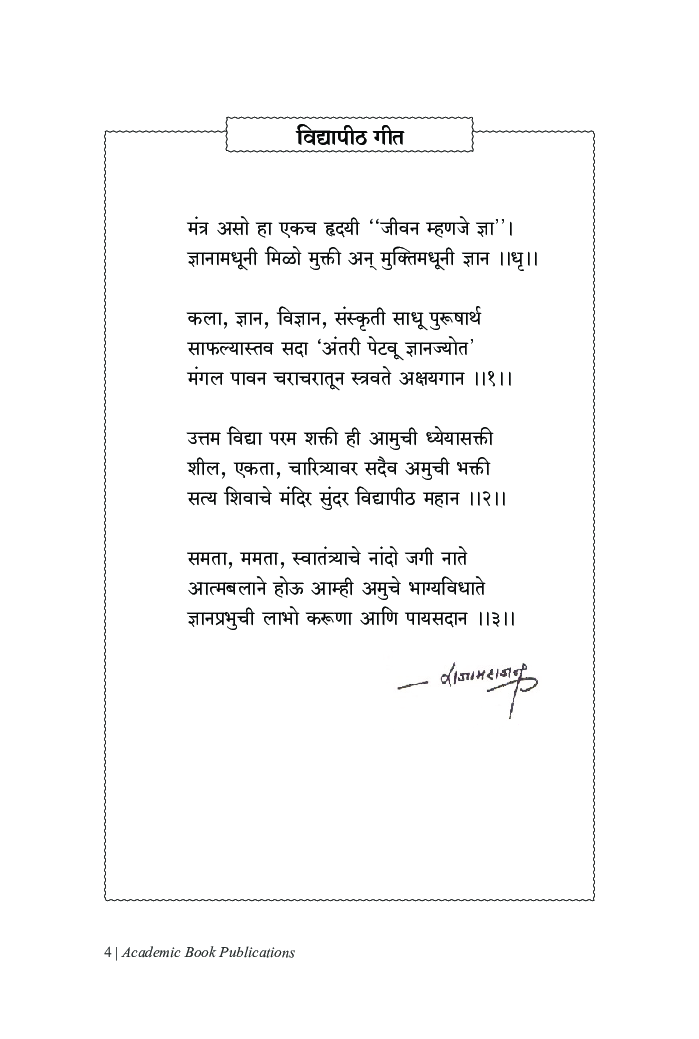 विद्यापीठ गीत
मंत्र असो हा एकच हृदयी ‘‘जीवन म्हणजे ज्ञा’’।
ज्ञानामधूनी मिळो मुक्ती अन् मुक्तिमधूनी ज्ञान ।।धृ।।
कला, ज्ञान, विज्ञान, संस्कृती साधू पुरूषार्थ
साफल्यास्तव सदा ‘अंतरी पेटवू ज्ञानज्योत’
मंगल पावन चराचरातून स्त्रवते अक्षयगान ।।१।।
उत्तम विद्या परम शक्ती ही आमुची ध्येयासक्ती
शील, एकता, चारित्र्यावर सदैव अमुची भक्ती
सत्य शिवाचे मंदिर सुंदर विद्यापीठ महान ।।२।।
समता, ममता, स्वातंत्र्याचे नांदो जगी नाते
आत्मबलाने होऊ आम्ही अमुचे भाग्यविधाते
ज्ञानप्रभुची लाभो करूणा आणि पायसदान ।।३।।
4 | Academic Book Publications